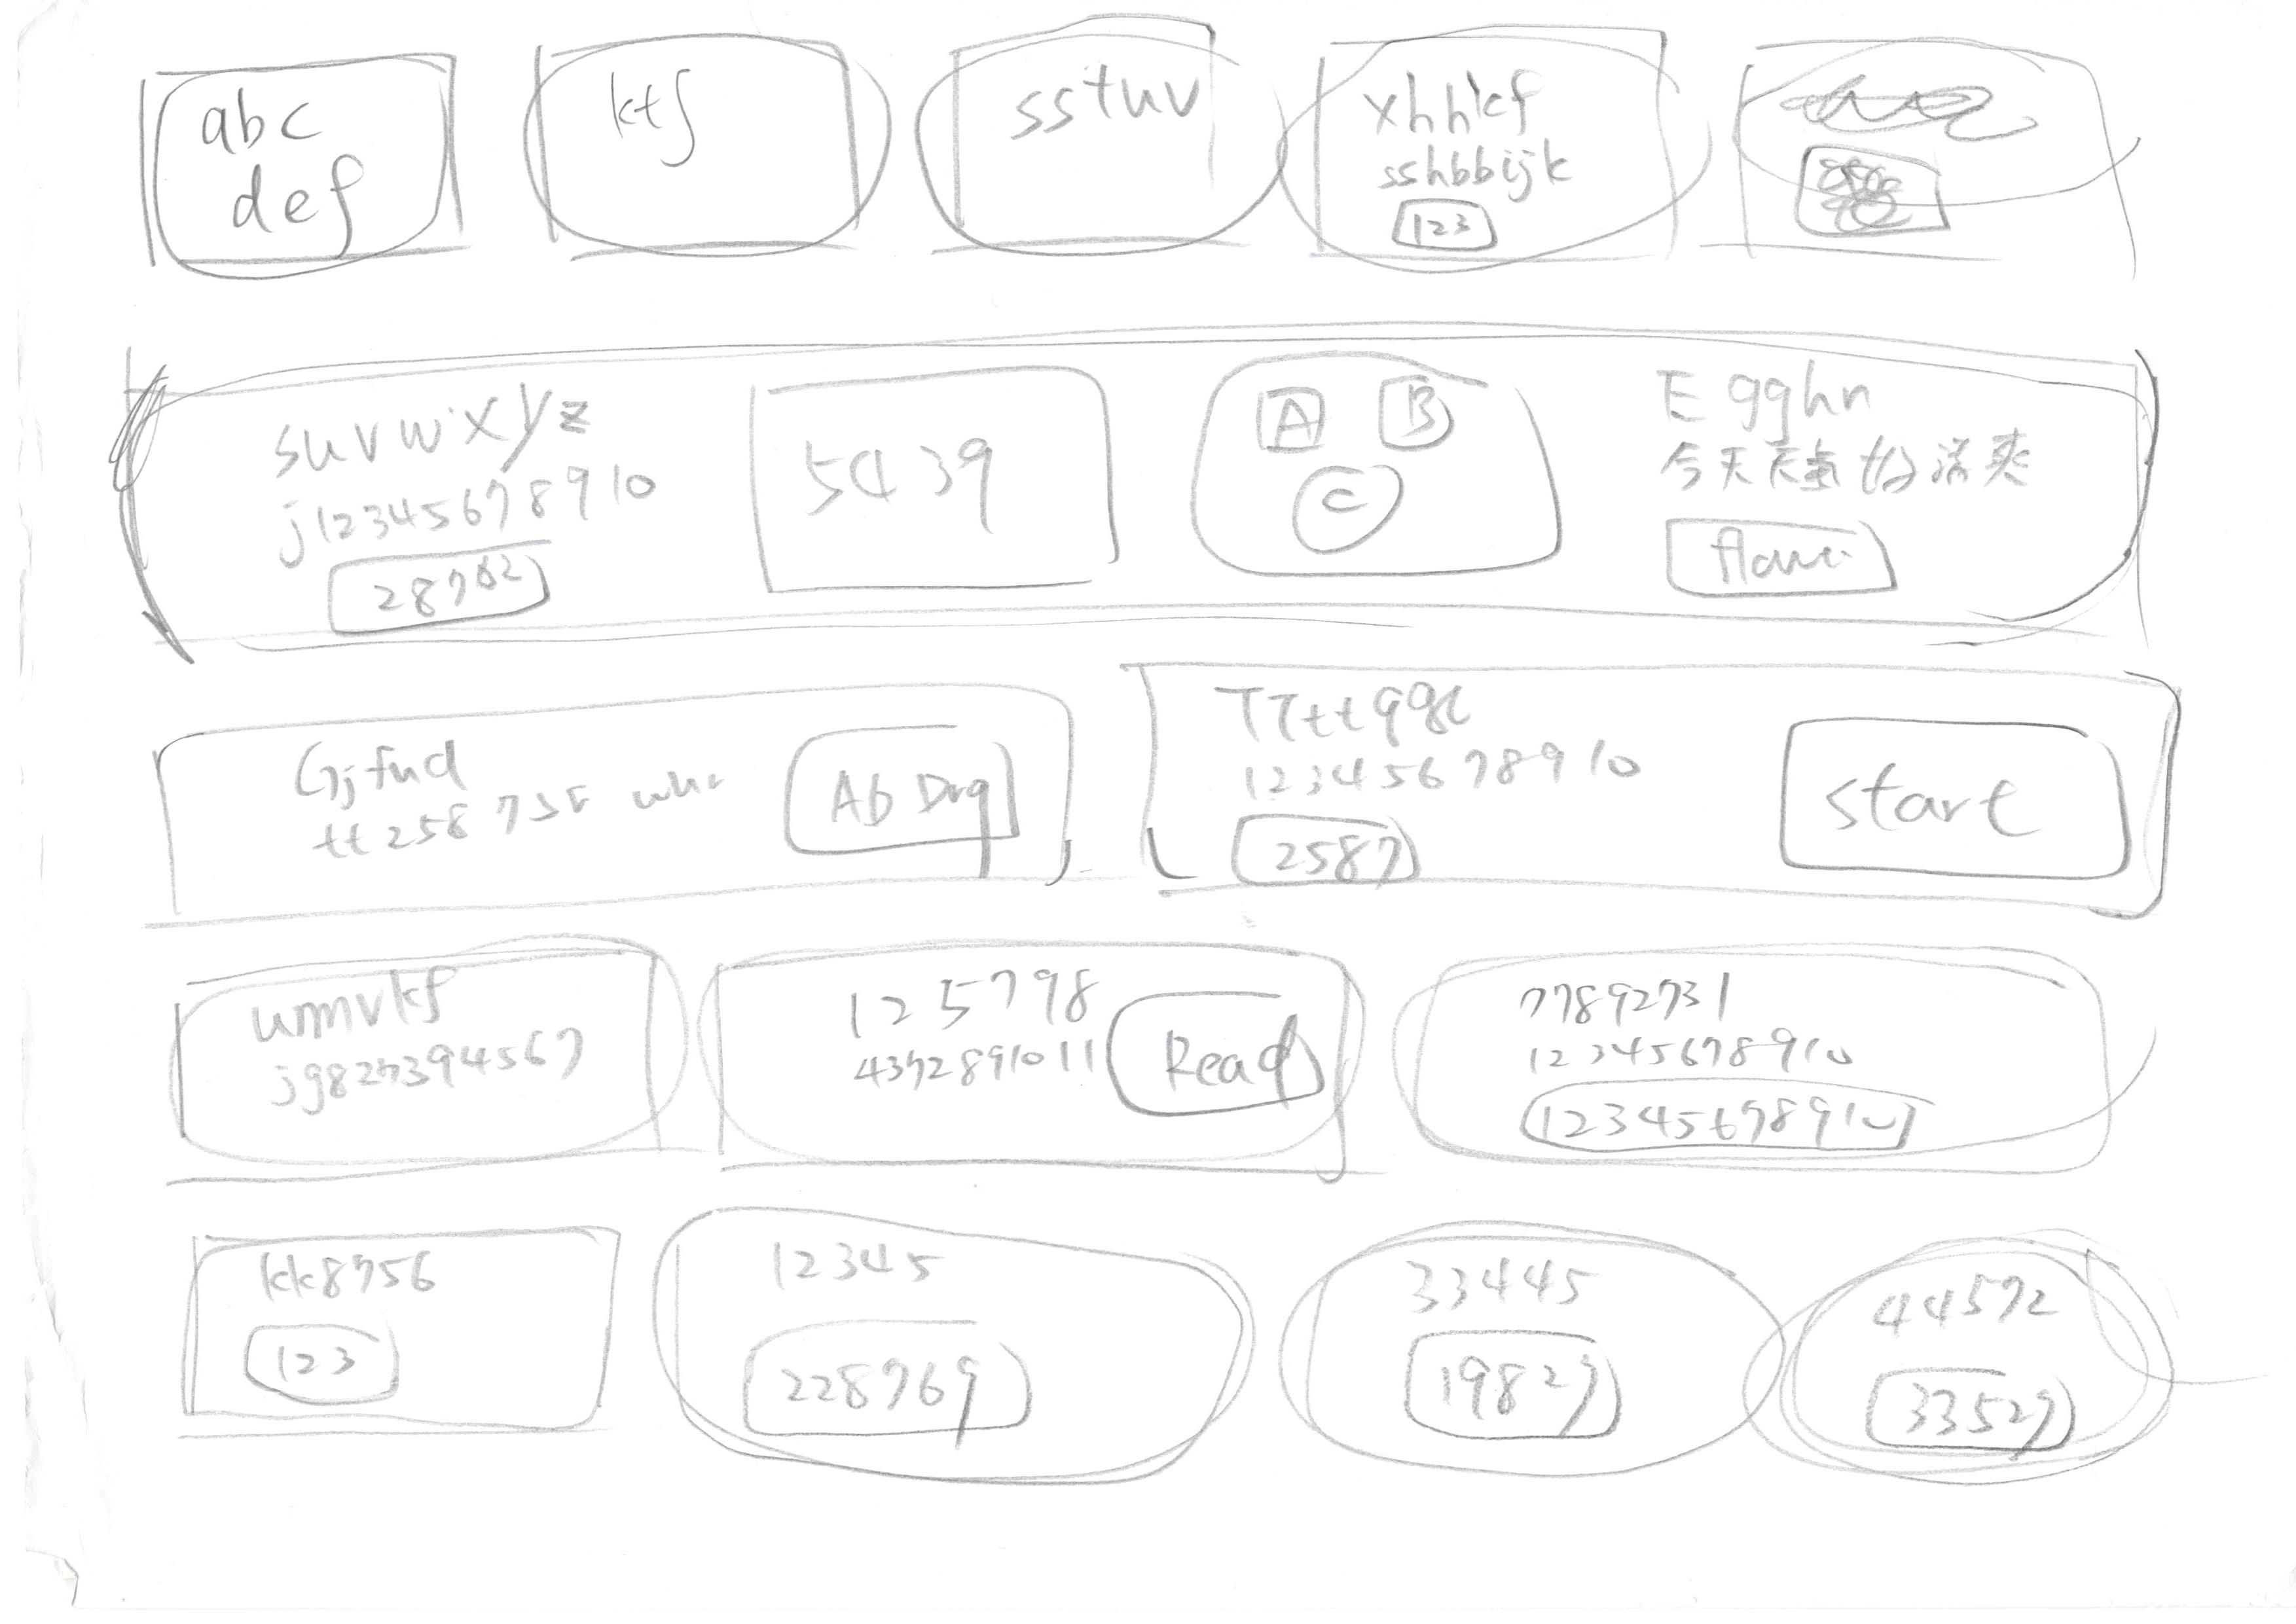 abc
def
ktf
sstuv
xhhkf
sshbbijk
123
suvwxyz
j12345678910
28762
5439
A
B
C
Egghn
今天天氣
爽
Gjfnd
tt258
Ab Drg
12345678910
2587
start
umvkf
jg827394567
125798
4372891011
Read
77892731
12345678910
12345678910
kk8756
123
12345
228769
33445
19829
44572
33529